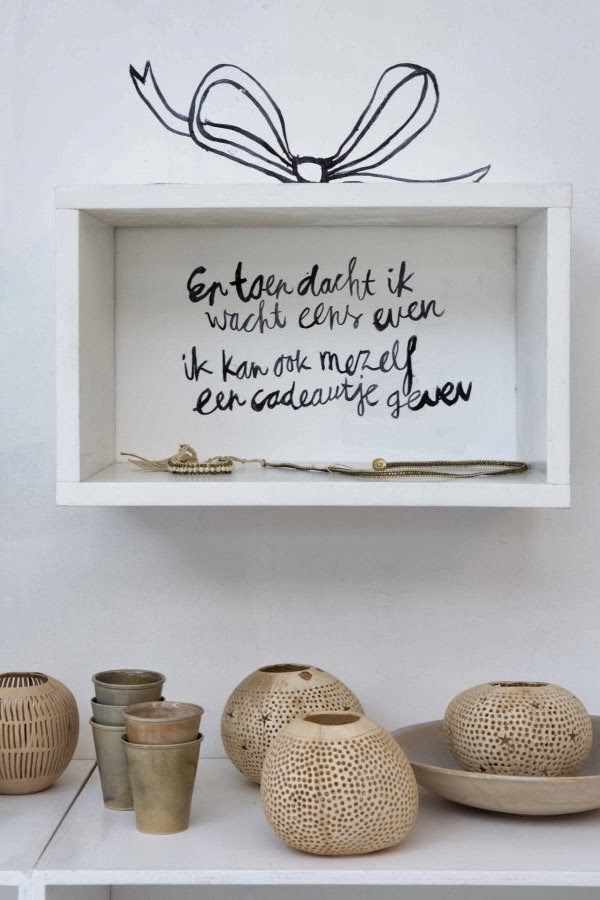 En toen dacht ik
wacht eens even
ik kan ook mezelf
een cadeautje geven